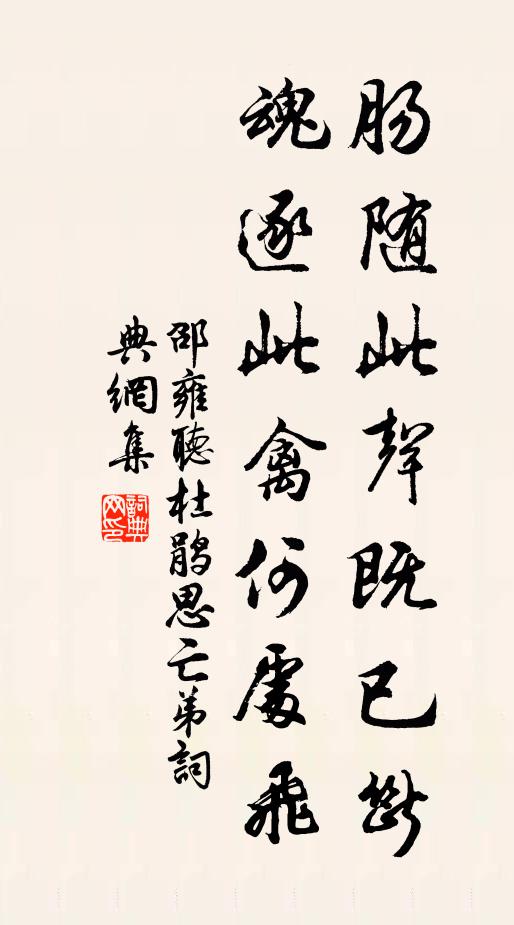 肠随此聲既已断
魂逐此禽何處飛
邵雍聽杜鹃思亡弟詞
典網集
詞典
网印